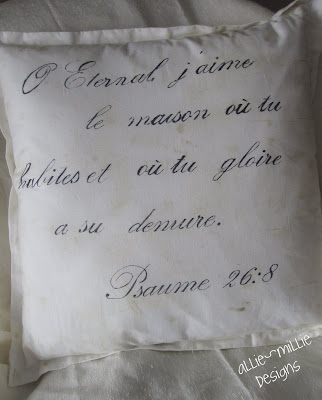 O Eternal j'aime
le maison où tu
habites et où tu gloire
a su demure.
Psaume 26:8
allie~millie
Designs